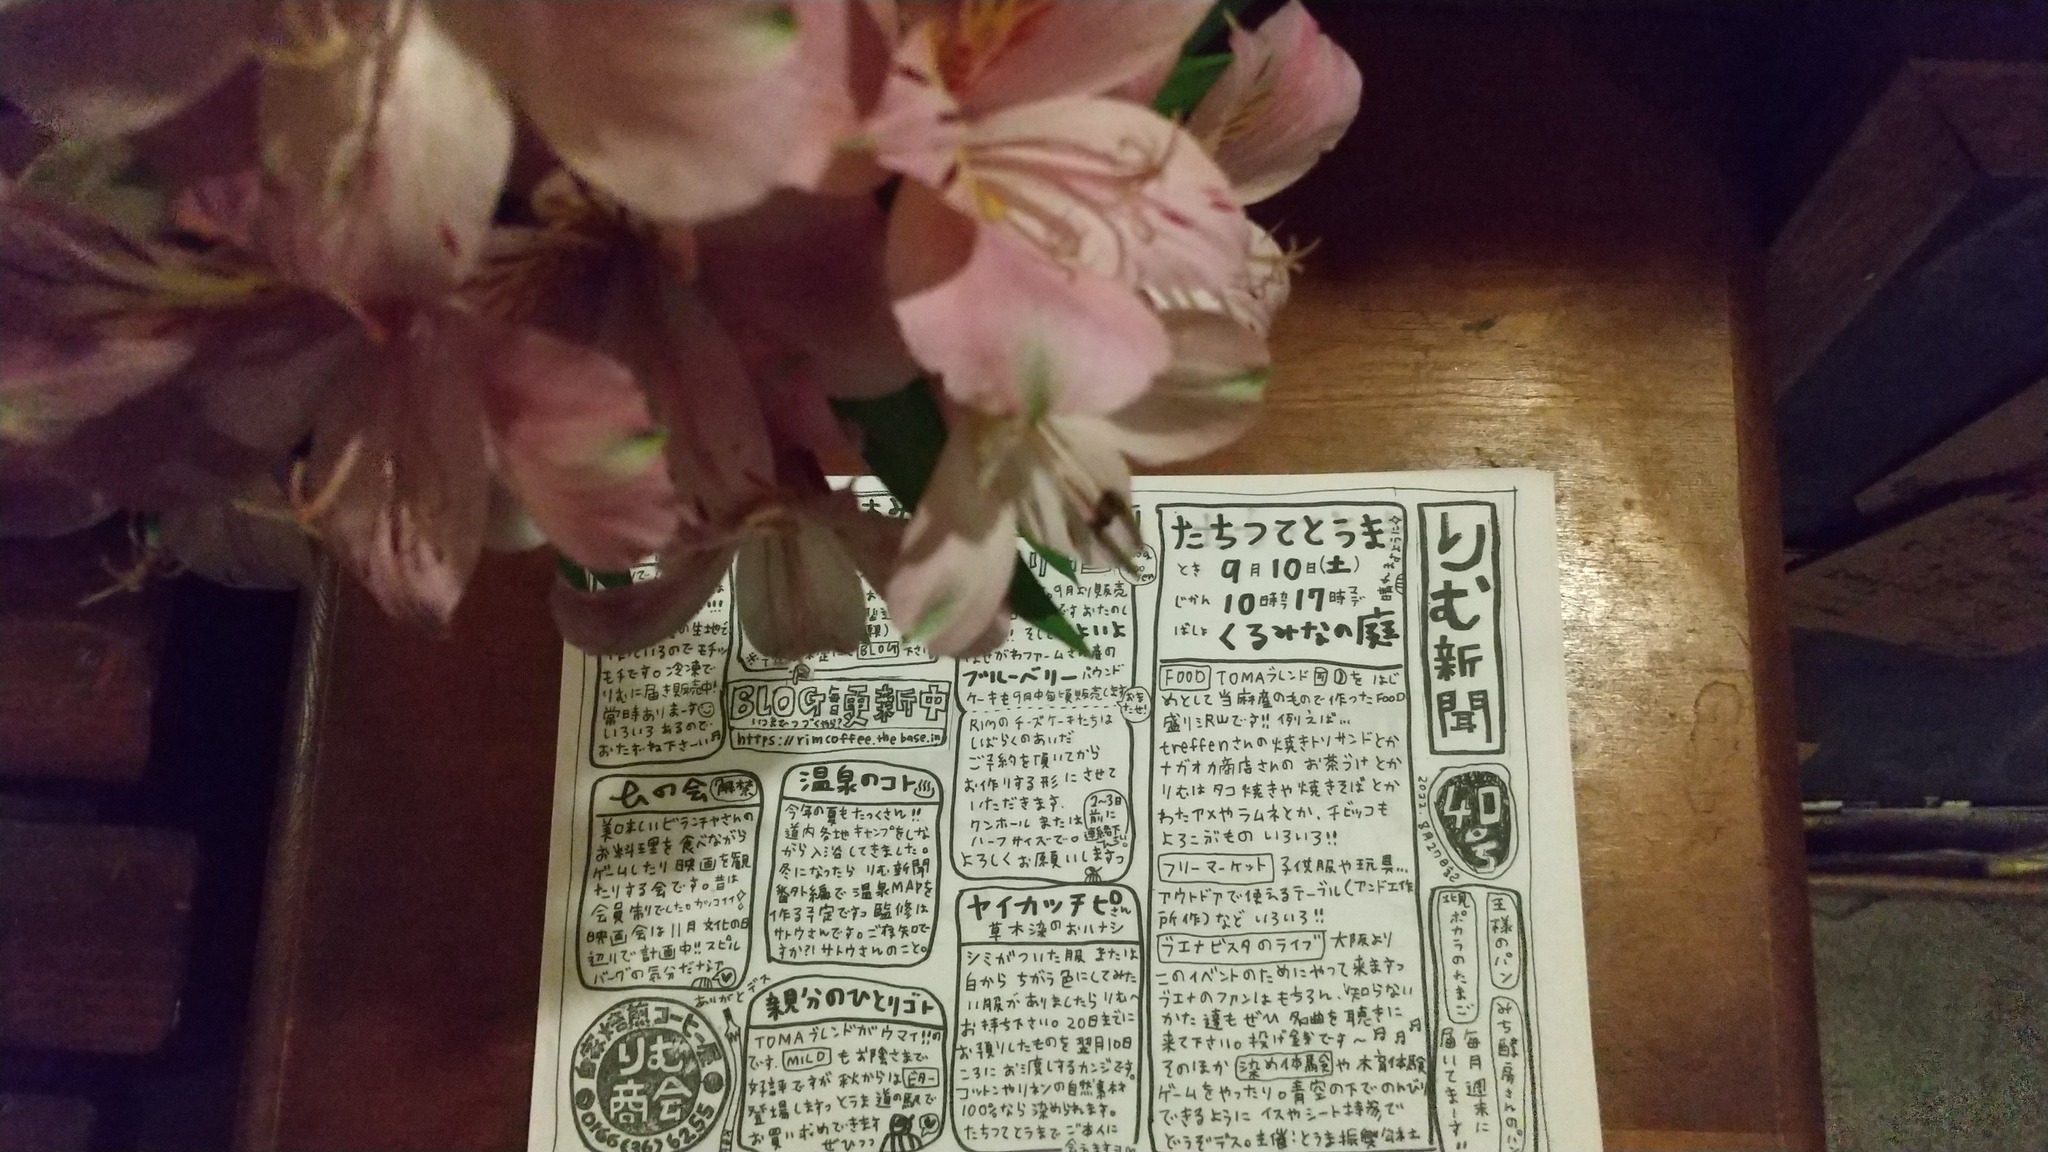 りむ新聞
40号
2022.8月27日記
王様のパン
みち酵房さんのパン
ポカラのたまご
毎月週末に
届いてまーす!!
たちつてとうま
晴れますように
とき 9月10日(土)
じかん 10時から17時まで
ばしょ くるみなの庭
FOOD TOMAブレンド をはじ
めとして当麻産のもので作ったFOOD
盛り沢山です!! 例えば…
treffenさんの焼きトリサンドとか
ナガオカ商店さんの お茶づけとか
りむはタコ焼きや焼きそばとか
わたアメやラムネとか、チビッコも
よろこぶもの いろいろ!!
フリーマーケット 子供服や玩具…
アウトドアで使えるテーブル(アンド工作
所作)など いろいろ!!
ラエナビスタのライブ 大阪より
このイベントのためにやって来ますっ
ラエナのファンはもちろん、知らない
かた達もぜひ 名曲を聴きに
来て下さい。投げ銭です〜
そのほか 染め体験や木育体験
ゲームをやったり。青空の下でのんびり
できるように イスやシート持参で
どうぞデス。主催:とうま振興公社
9月より販売
ですおたのし
そして よいよ
はせがわファームさん産の
ブルーベリーパウンド
ケーキも9月中旬頃販売します
おまたせ!
RIMのチーズケーキたちは
しばらくのあいだ
ご予約を頂いてから
お作りする形にさせて
いただきます。
2〜3日前に連絡下さい。
クンホールまたは
ハーフサイズで。
よろしくお願いしますっ
ヤイカッチピさん
草木染のおハナシ
シミがついた服 または
白から ちがう色にしてみた
い服がありましたら りむへ
お持ち下さい。20日までに
お預りしたものを 翌月10日
ころに お渡しするカンジです。
コットンやリネンの自然素材
100%なら染められます。
たちつてとうまでご本人に
会えますヨ
BLOG 下さい
BLOG更新中
いつまでつづくやら?
https://rimcoffee.thebase.in
温泉のコト
今年の夏もたっくさん!!
道内各地キャンプをしな
がら入浴してきました。
冬になったら りむ新聞
番外編で温泉MAPを
作る予定ですっ 監修は
サトウさんです。ご存知で
すか?! サトウさんのこと。
親分のひとりゴト
TOMAブレンドがウマイ!!の
です。MILDもお陰さまで
好評ですが 秋からはビター
登場しますっ とうま道の駅で
お買い求めできます
ぜひっっ
の生地で
作っているのでモチッ
モチです。冷凍で
りむに届き販売中!
常時ありまーす
いろいろあるので
おたずね下さーい
ムの会 解禁
美味しいビランチャさんの
お料理を食べながら
ゲームしたり 映画を観
たりする会です。昔は
会員制でした。カッコイイ
映画会は11月文化の日
辺りで計画中!! スピル
バーグの気分だなァ
ありがとデス
自家焙煎コーヒー屋
りむ商会
0166(36)6255